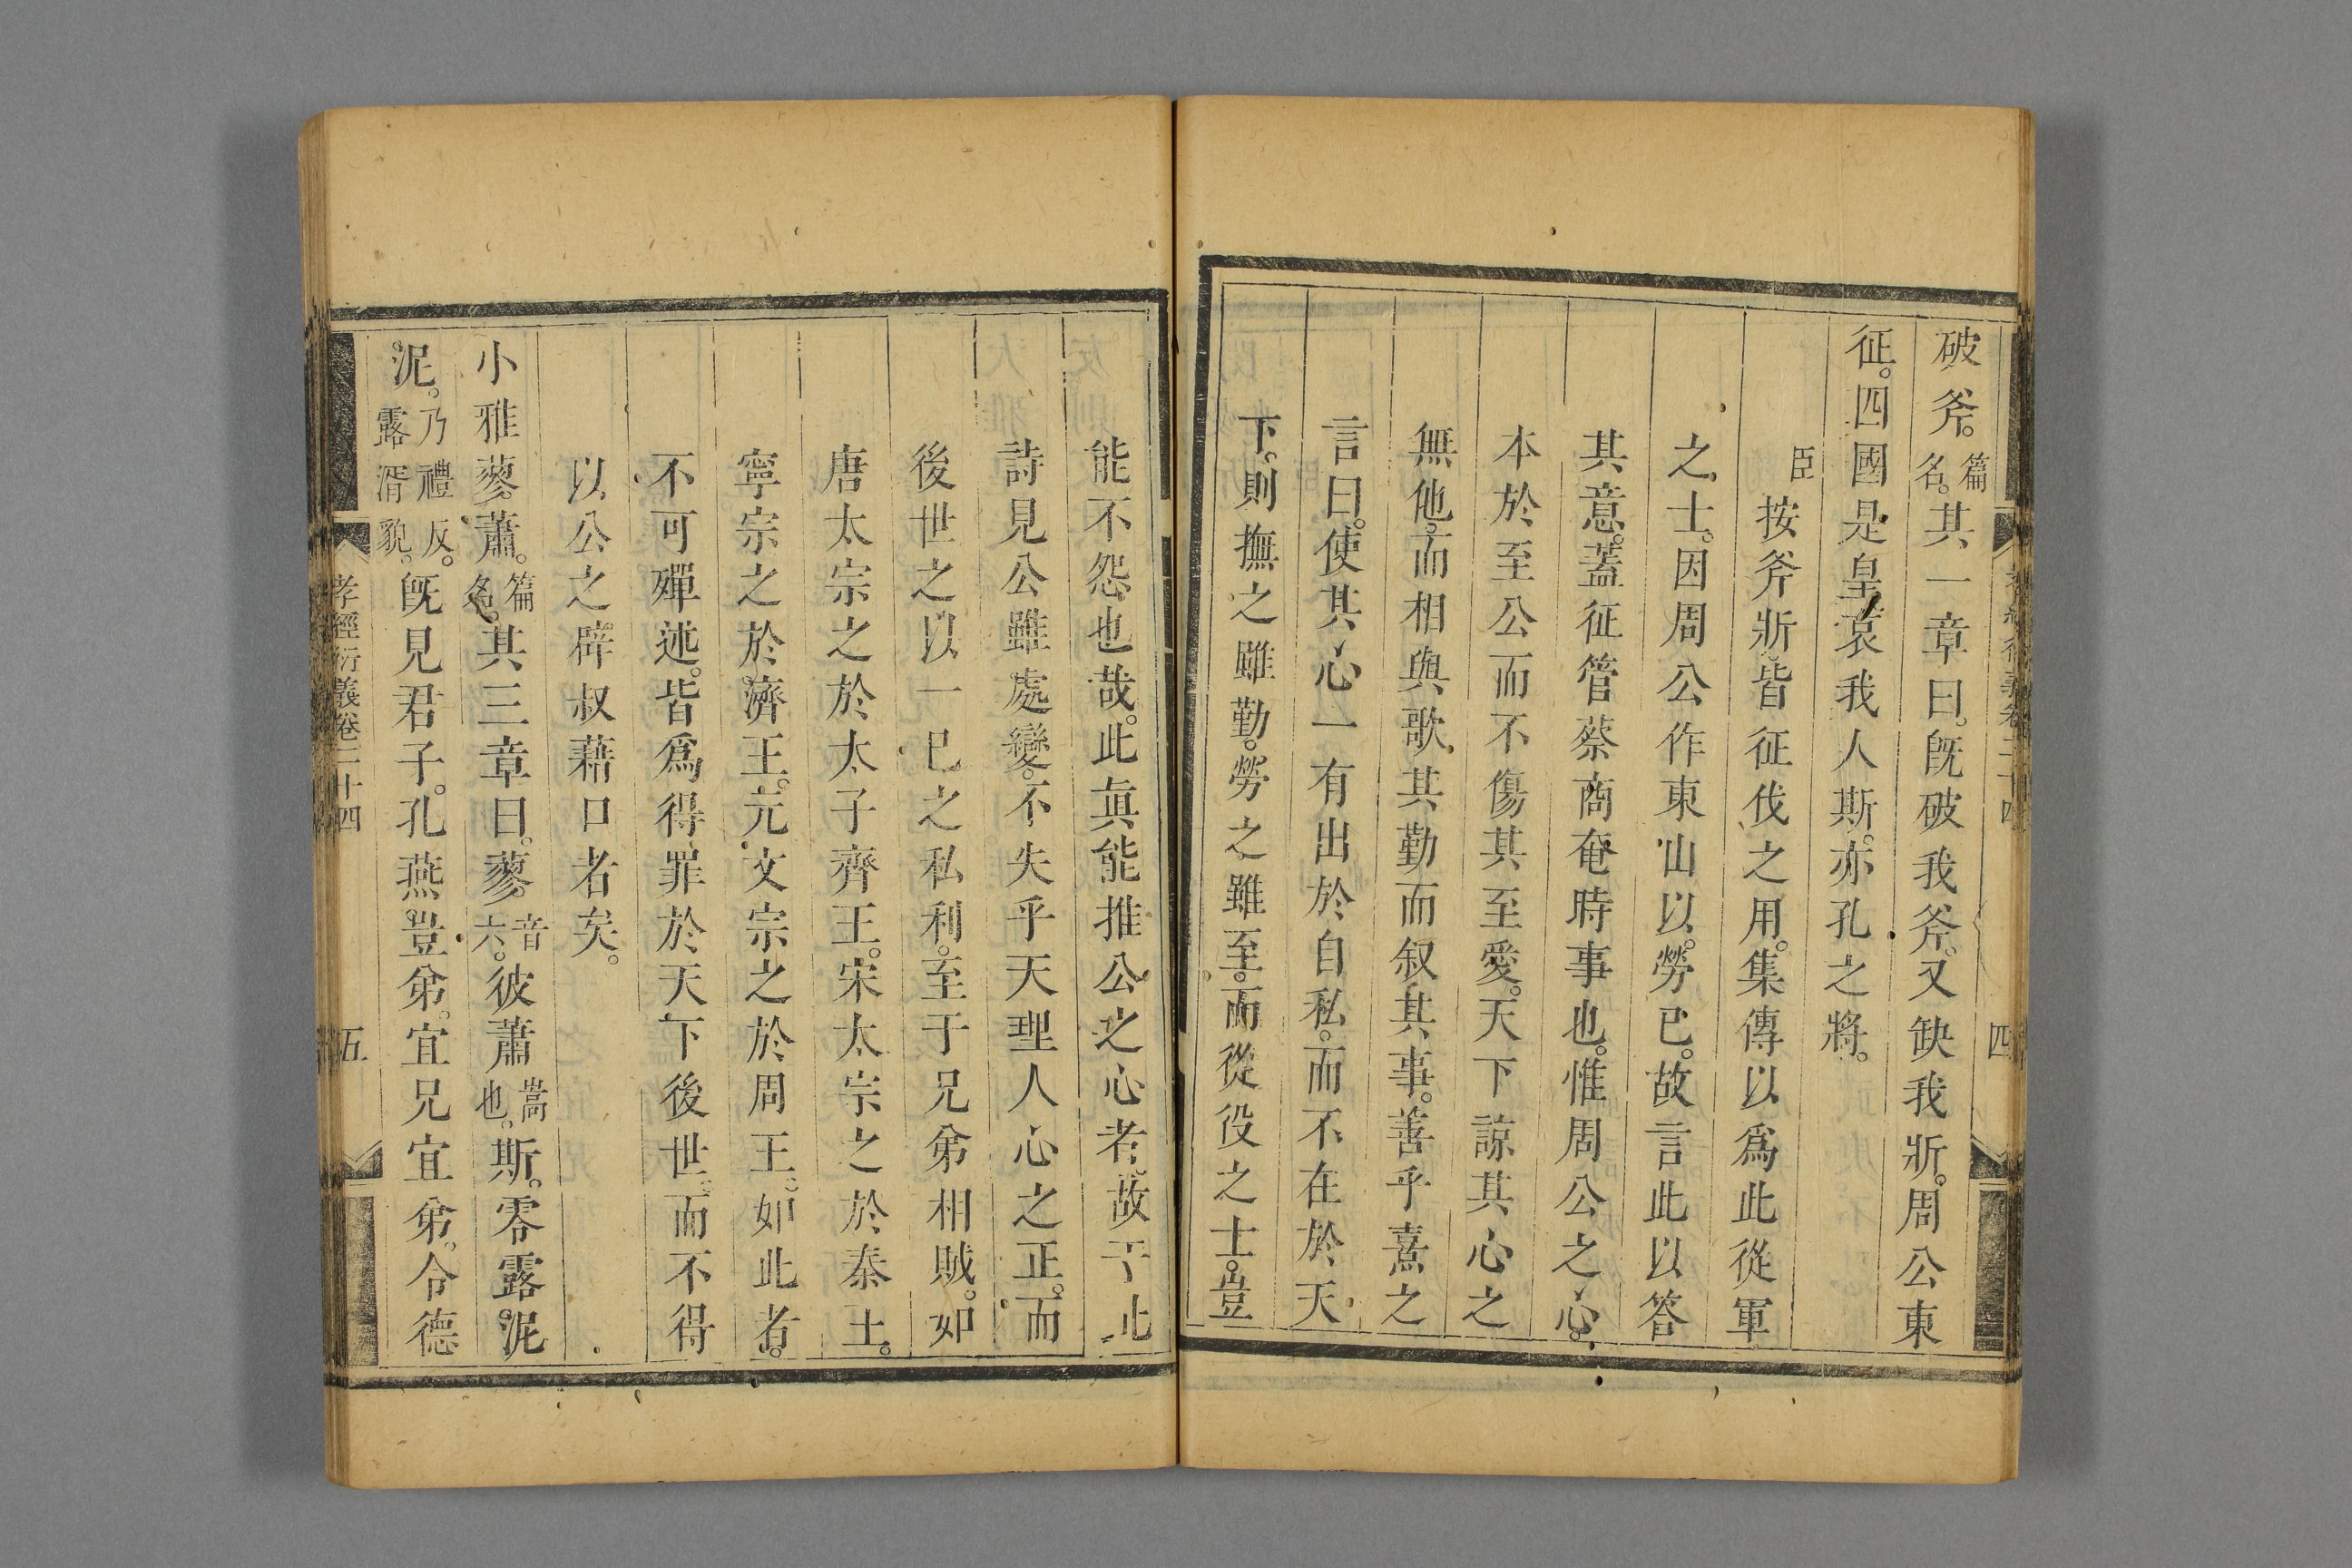 破斧。篇名。其一章曰。旣破我斧。又缺我斨。周公東
征。四國是皇。哀我人斯。亦孔之將。
臣按斧斨皆征伐之用。集傳以爲此從軍
之士。因周公作東山以勞已。故言此以答
其意。蓋征管蔡商奄時事也。惟周公之心。
本於至公而不傷其至愛。天下諒其心之
無他。而相與歌其勤而叙其事。善乎熹之
言曰。使其心一有出於自私。而不在於天
下。則撫之雖勤。勞之雖至。而從役之士。豈
能不怨也哉。此眞能推公之心者。故于此
詩見公雖處變。不失乎天理人心之正。而
後世之以一巳之私利。至于兄弟相賊。如
唐太宗之於太子齊王。宋太宗之於秦王。
寧宗之於濟王。元文宗之於周王。如此者。
不可殫述。皆爲得罪於天下後世。而不得
以公之辟叔藉口者矣。
小雅蓼蕭。篇名。其三章曰。蓼音六。彼蕭蒿也。斯。零露泥
泥。乃禮反。露濡貌。旣見君子。孔燕豈弟。宜兄宜弟。令德
孝經衍義卷二十四
四
孝經衍義卷二十四
五